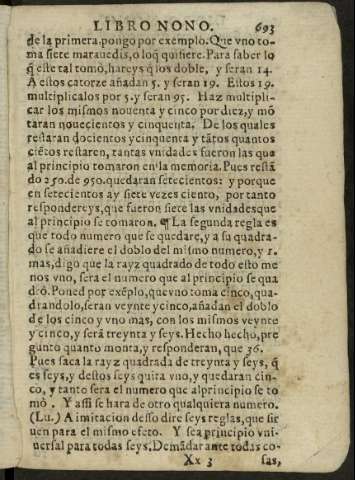 LIBRO NONO. 693
de la primera. pongo por exemplo. Que vno to-
ma siete marauedis, o loq̃ quisiere. Para saber lo
q̃ este tal tomò, hareys q̃ los doble, y seran 14.
A estos catorze añadan 5. y seran 19. Estos 19.
multiplicalos por 5. y seran 95. Haz multipli-
car los mismos nouenta y cinco por diez, y mõ
taran nouecientos y cinquenta. De los quales
restaran docientos ycinquenta y tãtos quantos
ciẽtos restaren, tantas vnidades fueron las que
al principio tomaron en la memoria. Pues restã
do 250. de 950. quedaran setecientos: y porque
en setecientos ay siete vezes ciento, por tanto
respondereys, que fueron siete las vnidadesque
al principio se tomaron. ¶ La segunda regla es
que todo numero que se quedare, y a su quadra-
do se añadiere el doblo del mismo numero, y 1.
mas, digo que la rayz quadrado de todo esto me
nos vno, sera el numero que al principio se qua
drò. Poned por exẽplo, quevno toma cinco, qua-
drandolo, seran veynte y cinco, añadan el doblo
de los cinco y vno mas, con los mismos veynte
y cinco, y serà treynta y seys. Hecho hecho, pre
gunto quanto monta, y responderan, que 36.
Pues saca la rayz quadrada de treynta y seys, q̃
es seys, y destos seys quita vno, y quedaran cin-
co, y tanto sera el numero que alprincipio se to
mò. Y assi se hara de otro qualquiera numero.
(Lu.) A imitacion desso dire seys reglas, que sir
uen para el mismo efeto. Y sea principio vni-
uersal para todas seys. Demãdar ante todas co-
Xx 3 sas,